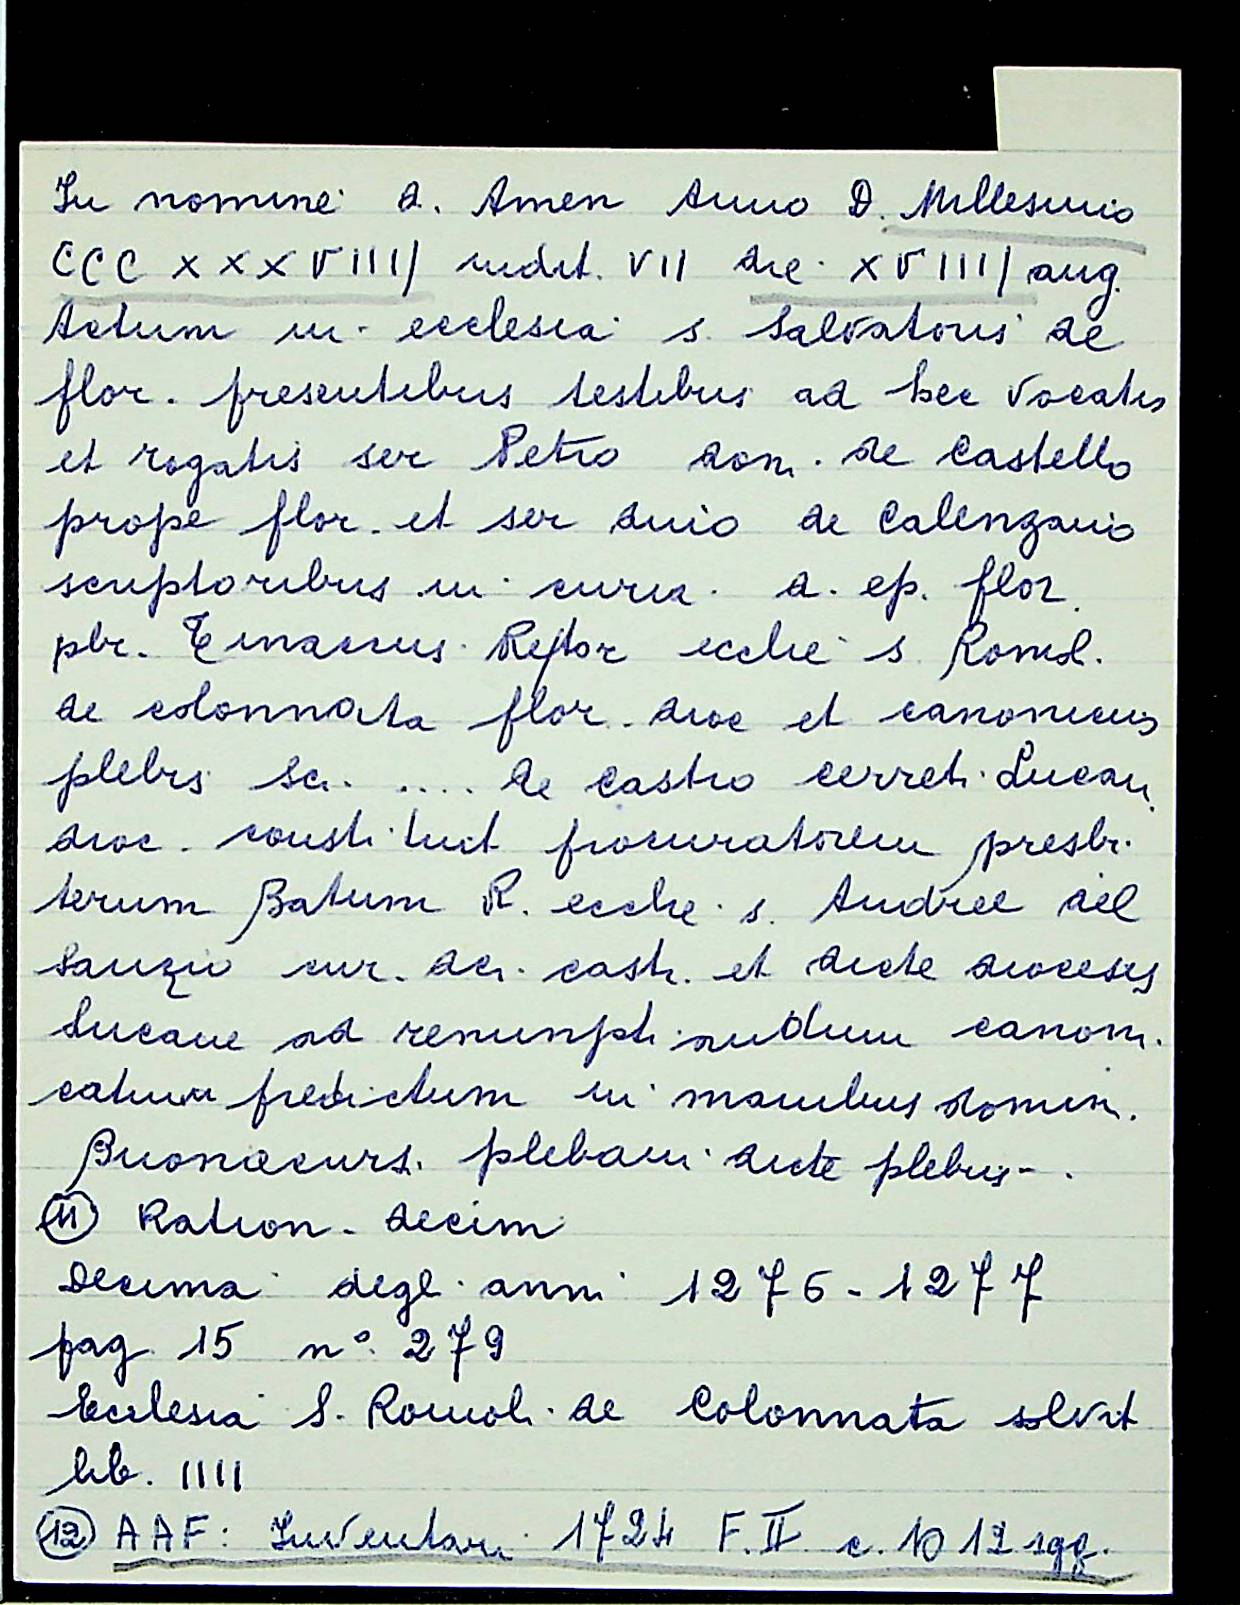 In nomine d. Amen Anno D. Millesimo
CCC XXXVIIII indit. VII die XVIIII aug.
Actum in ecclesia s. Salvatoris de
flor. presentibus testibus ad hec vocatis
et rogatis ser Petro dom. de Castello
prope flor. et ser de Calenzano
scriptoribus in curia d. ep. flor.
pbr. Rector ecclie s. Romol.
de colonnata flor. dioc et canonicus
plebis Sci. .... de Castro cerreti Lucan.
dioc. constituit procuratorem presbi-
terum Batum R. ecclie s. Andree del
Sanzio cur. dci. castri. et dicte diocesis
Lucane ad renumptiandum canoni-
catum predictum in manibus domin.
Buonacursi. plebani dicte plebis - .
(11) Ration. decim
Decima degli anni 1276-1277
pag. 15 n°. 279
Ecclesia S. Romoli de Colonnata solvit
lib. IIII
(12) AAF: Inventari 1724 F. II c. 12 sgg.